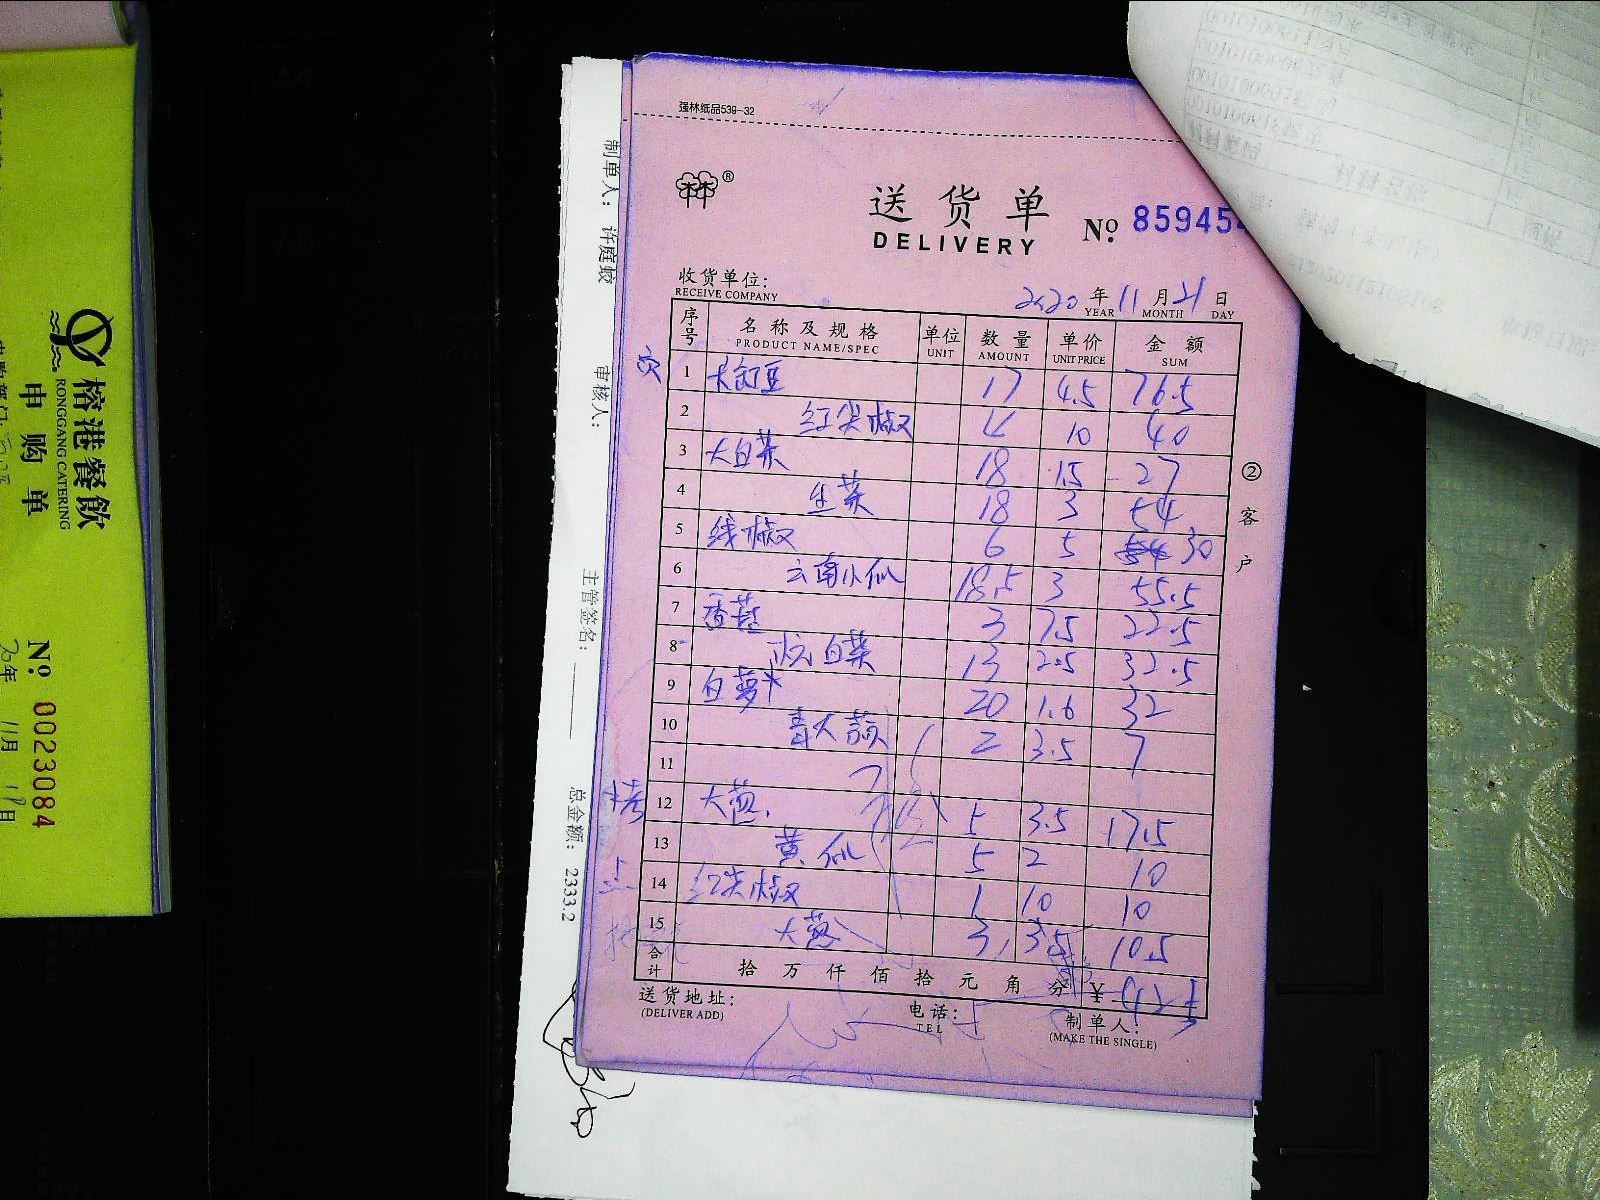 强林纸品539-32
林®
送货单
DELIVERY
No. 85945
收货单位:
RECEIVE COMPANY
2020年11月21日
YEAR MONTH DAY
序号 名称及规格 单位 数量 单价 金额
PRODUCT NAME/SPEC UNIT AMOUNT UNIT PRICE SUM
1 17 4.5 76.5
2 红尖椒 4 10 40
3 大白菜 18 1.5 27
4 生菜 18 3 54
5 线椒 6 5 30
6 云南小瓜 18.5 3 55.5
7 香菇 3 7.5 22.5
8 白菜 13 2.5 32.5
9 白萝卜 20 1.6 32
10 青大蒜 2 3.5 7
11
12 大葱 5 3.5 17.5
13 黄瓜 5 2 10
14 红尖椒 1 10 10
15 大葱 3 3.5 10.5
合计 拾万仟佰拾元角分 ¥
送货地址:
(DELIVER ADD)
电话:
TEL
制单人:
(MAKE THE SINGLE)
②客户
制单人: 许庭蛟
审核人:
主管签名:
总金额: 2333.2
榕港餐飲
RONGGANG CATERING
申购单
No. 0023084
20年11月